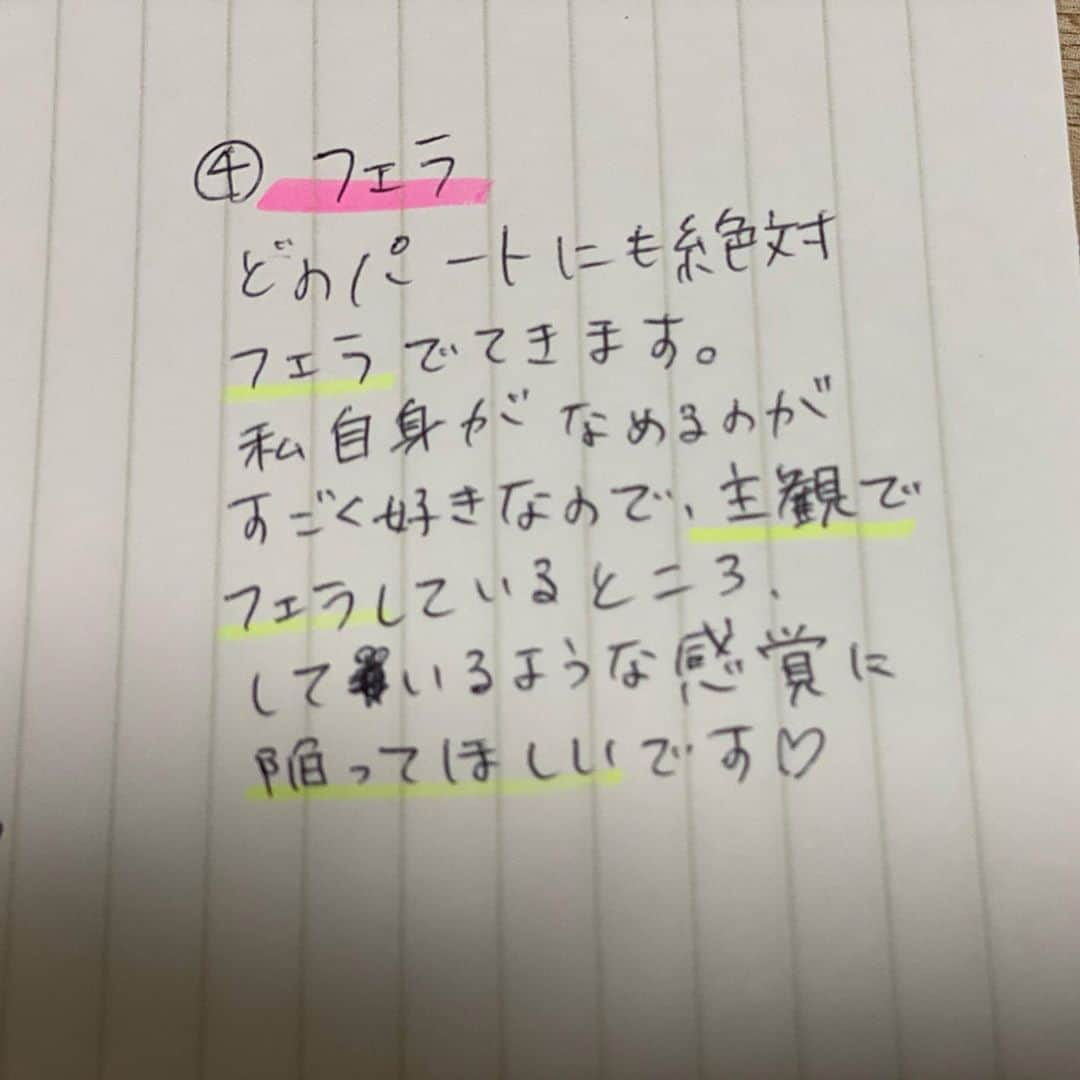 ④ フェラ
どのパートにも絶対
フェラでてきます。
私自身がなめるのが
すごく好きなので、主観で
フェラしているところ、
しているような感覚に
陥ってほしいです♡